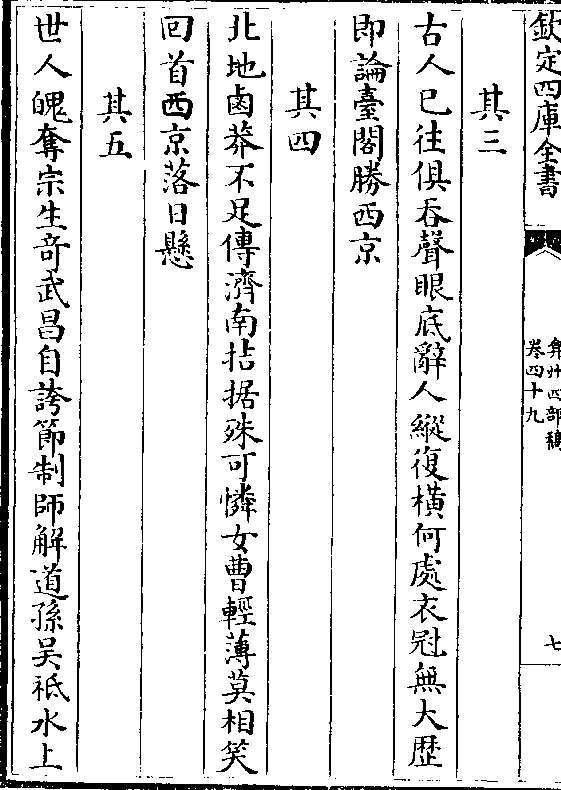 欽定四庫全書
弇州四部稿
卷四十九
七
其三
古人已往俱吞聲眼底辭人縱復橫何處衣冠無大歴
即論臺閣勝西京
其四
北地鹵莽不足傳濟南拮据殊可憐女曹輕薄莫相笑
回首西京落日懸
其五
世人魄奪宗生竒武昌自誇節制師解道孫吴祗水上